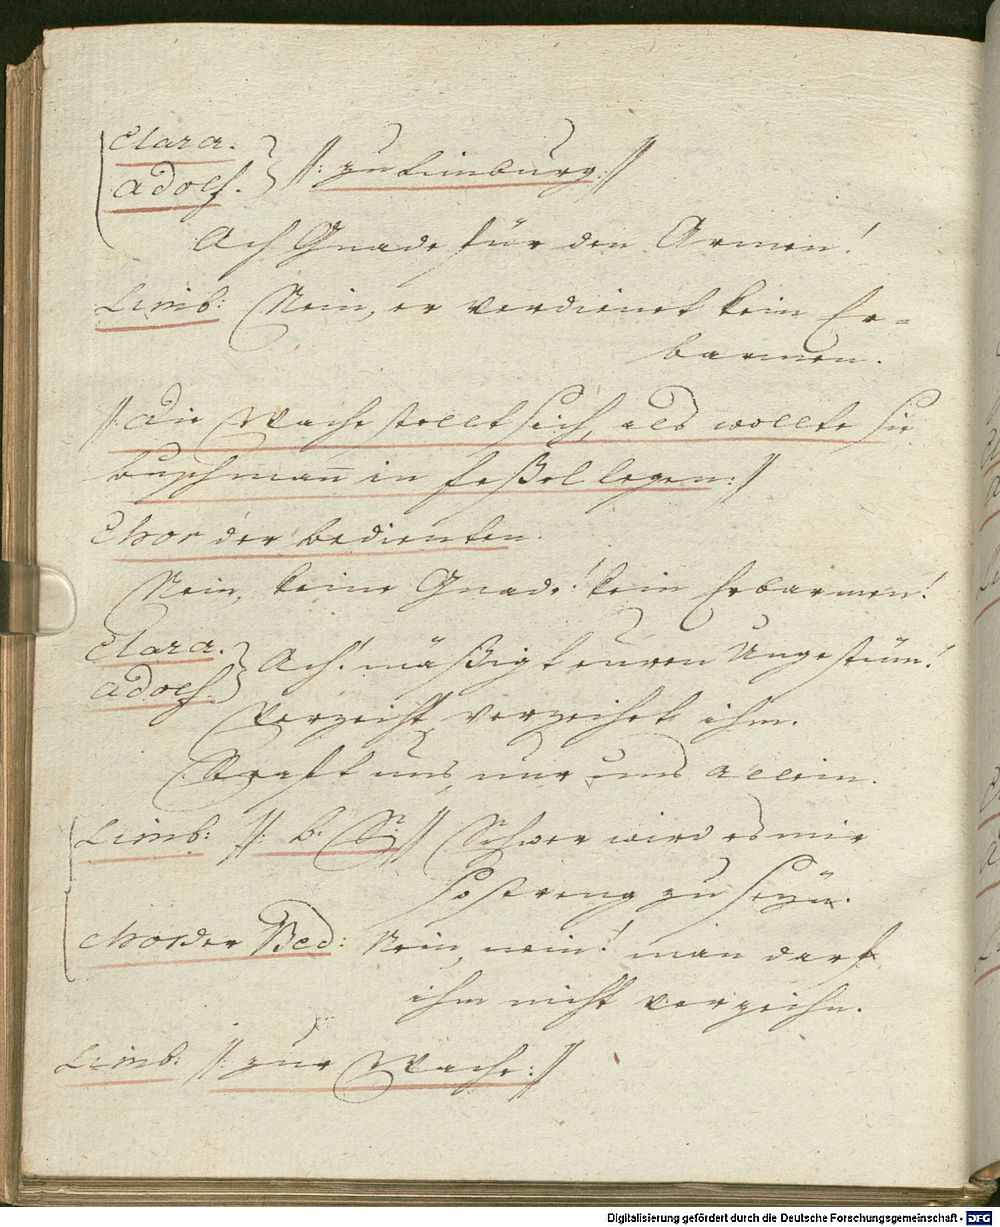 Clara.
Adolf. } //: zu Limburg ://
Ach Gnade für den Armen!
Limb: Nein, er verdienet kein Er=
barmen.
//: Die Wache stellt sich, als wollte sie
Buschmann in Feßel legen ://
Chor der Bedienten.
Nein, keine Gnade! kein Erbarmen!
Clara.
Adolf. } Ach! mäßigt euren Ungestüm!
Verzeiht, verzeihet ihm.
Straft uns, nur uns allein.
Limb: //: b. S: :// Schwer wird es mir
so streng zu seyn.
Chor der Bed: Nein, nein! man darf
ihm nicht verzeihn.
Limb: //: zur Wache ://
Digitalisierung gefördert durch die Deutsche Forschungsgemeinschaft - DFG